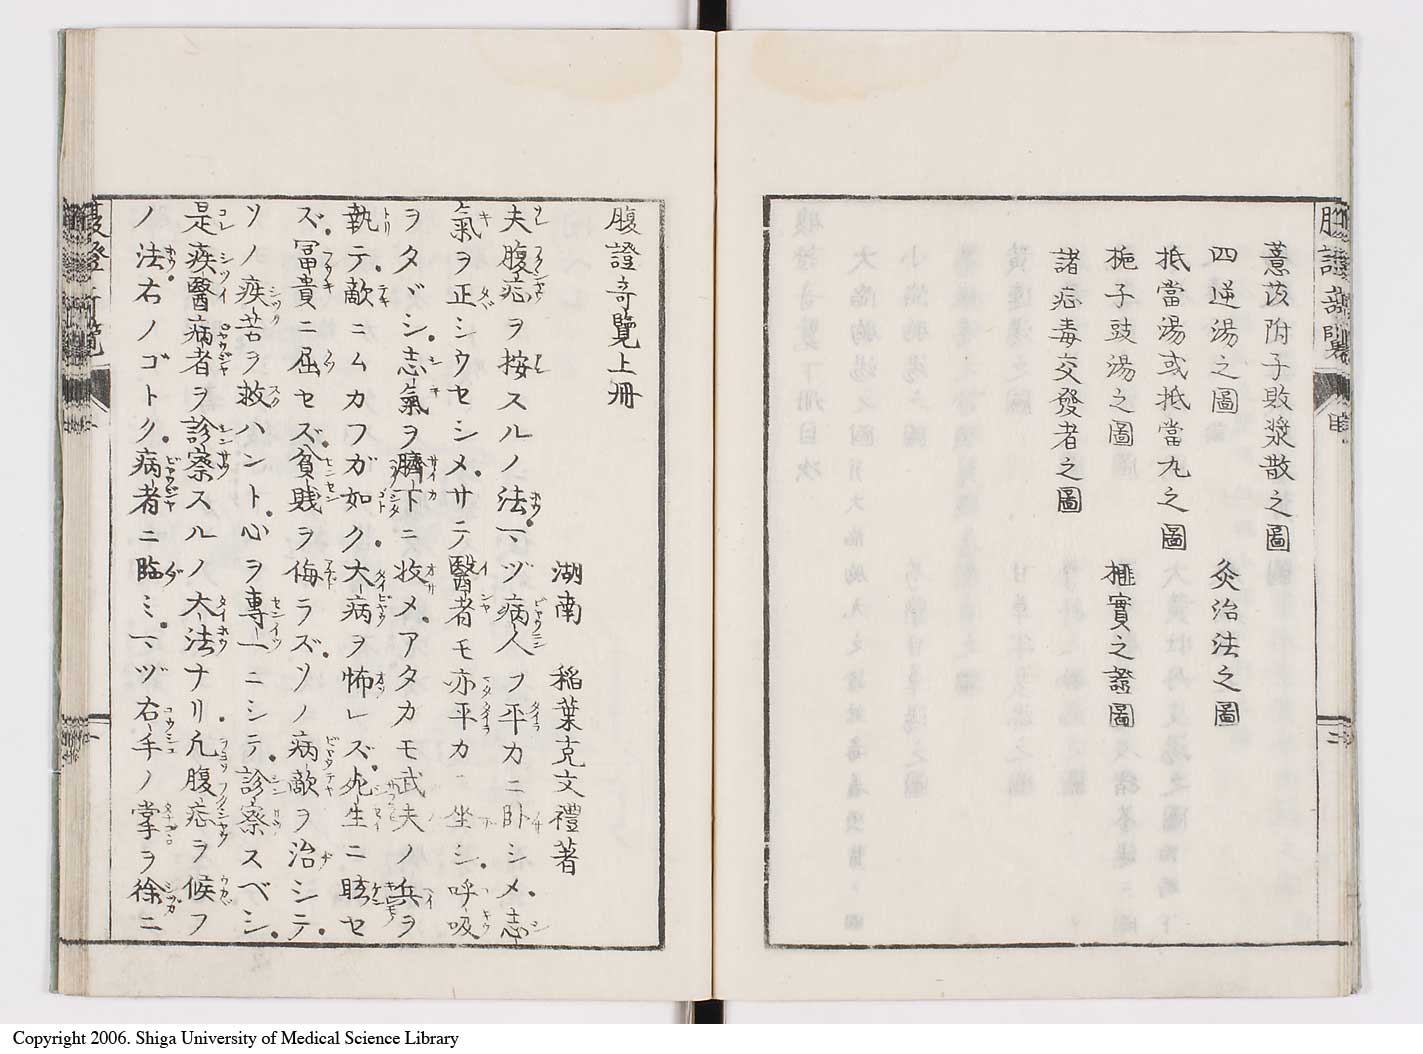 薏苡附子敗漿散之圖
四逆湯之圖 灸治法之圖
抵當湯或抵當丸之圖
梔子豉湯之圖 榧實之證圖
諸症毒交發者之圖
目
二
腹證奇覽上冊
湖南 稲葉克文禮著
夫腹症ヲ按スルノ法マヅ病人ヲ平カニ卧シメ志
氣ヲ正シウセシメサテ醫者モ亦平カニ坐シ呼吸
ヲタダシ志氣ヲ臍下ニ收メアタカモ武夫ノ兵ヲ
執テ敵ニムカフガ如ク大病ヲ怖レズ死生ニ眩セ
ズ冨貴ニ屈セズ貧賎ヲ侮ラズソノ病敵ヲ治シテ
ソノ疾苦ヲ救ハント心ヲ專一ニシテ診察スベシ
是疾醫病者ヲ診察スルノ大法ナリ凡腹症ヲ候フ
ノ法右ノゴトク病者ニ臨ミマヅ右手ノ掌ヲ徐ニ
腹證奇覽
Copyright 2006. Shiga University of Medical Science Library